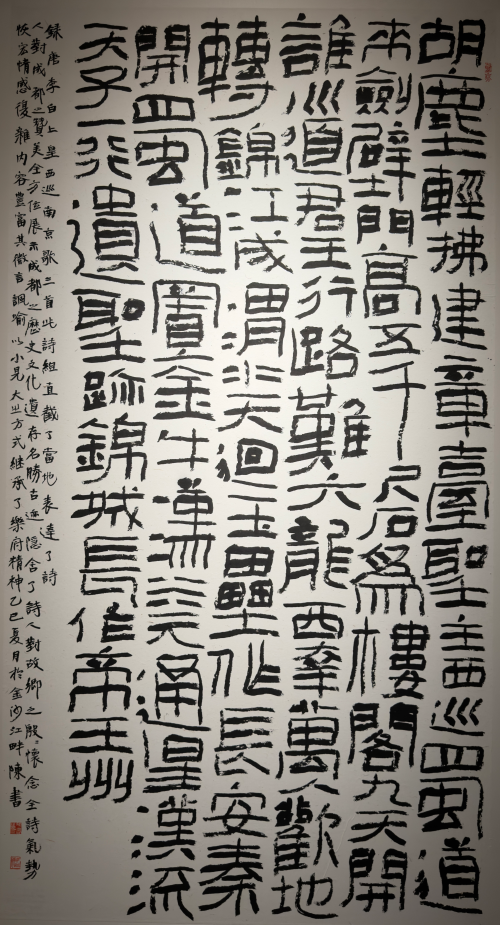 胡塵輕拂建章臺聖主西巡蜀道
來劍壁門高五千尺石為樓閣九天開
誰道君王行路難六龍西幸萬人歡地
轉錦江成渭水天迴玉壘作長安秦
開蜀道置金牛漢水元通星漢流
天子一行遺聖跡錦城長作帝王州
録唐李白上皇西巡南京歌三首此詩組直截了當地表達了詩
人對成都之贊美全方位展示成都之歷史文化遺存名勝古迹隱含了詩人對故鄉之殷殷懷念全詩氣勢
恢宏情感復雜内容豐富其微言諷喻以小見大之方式繼承了樂府精神乙巳夏月於金沙江畔陳書